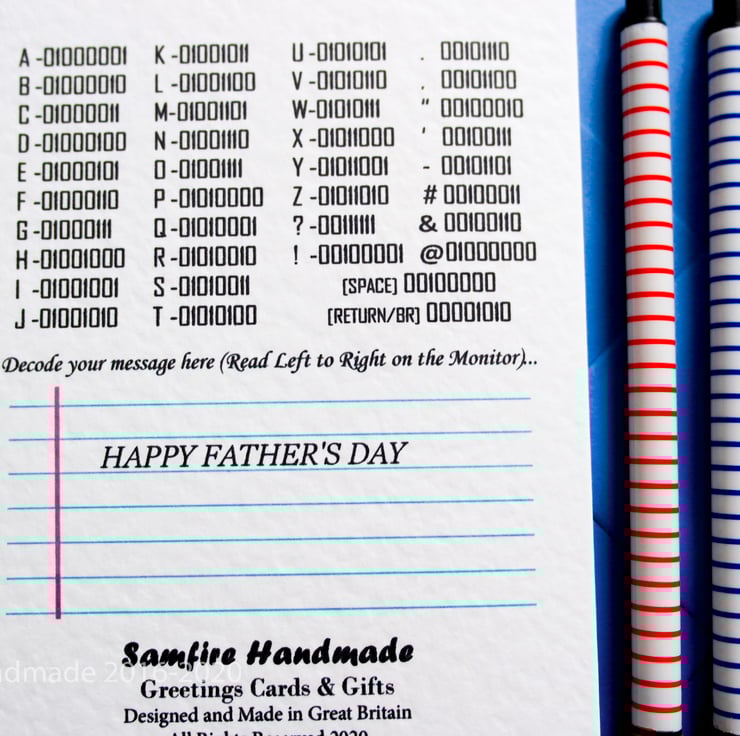 A -01000001 K -01001011 U -01010101 . 00101110
B -01000010 L -01001100 V -01010110 , 00101100
C -01000011 M-01001101 W-01010111 " 00100010
D -01000100 N -01001110 X -01011000 ' 00100111
E -01000101 O -01001111 Y -01011001 - 00101101
F -01000110 P -01010000 Z -01011010 # 00100011
G -01000111 Q -01010001 ? -00111111 & 00100110
H -01001000 R -01010010 ! -00100001 @01000000
I -01001001 S -01010011 [SPACE] 00100000
J -01001010 T -01010100 [RETURN/BR] 00001010
Decode your message here (Read Left to Right on the Monitor)...
HAPPY FATHER'S DAY
Samfire Handmade
ndmade 2016-2020
Greetings Cards & Gifts
Designed and Made in Great Britain
All Rights Reserved 2020